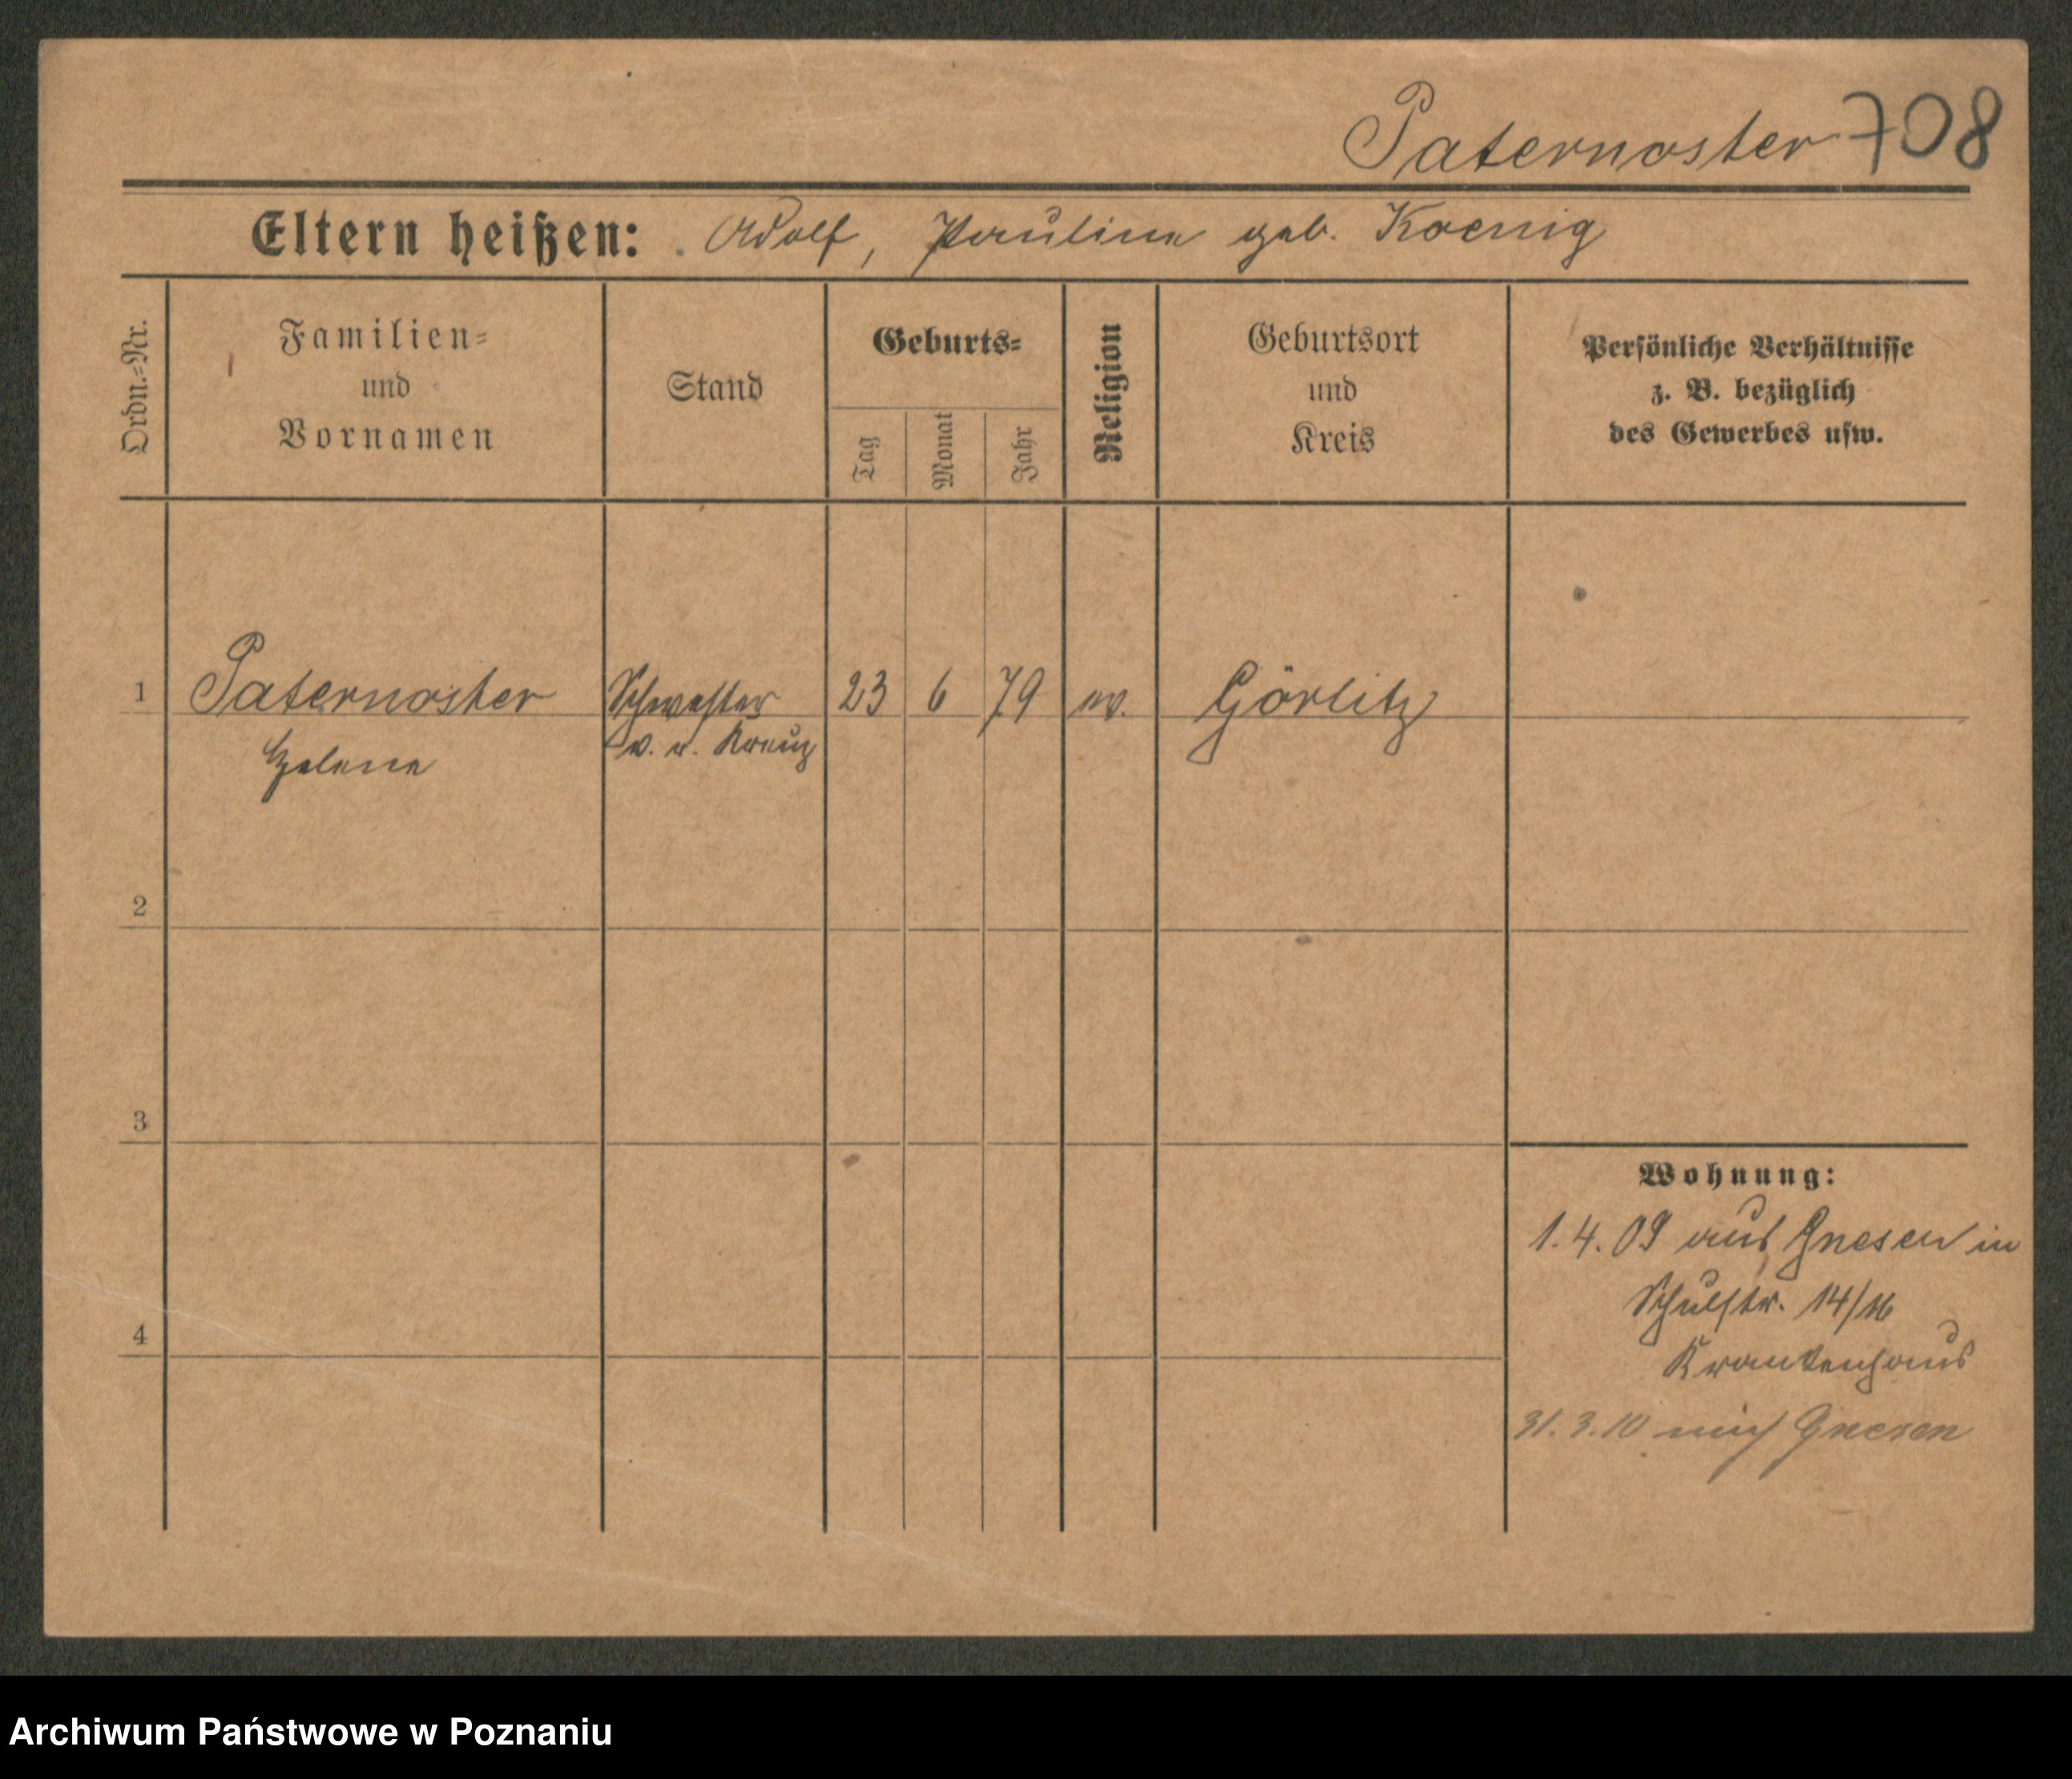 Paternoster 708
Eltern heißen: Adolf, Pauline geb. Koenig
Ordn.-Nr.
Familien-
und
Vornamen
Stand
Geburts-
Tag
Monat
Jahr
Religion
Geburtsort
und
Kreis
Persönliche Verhältnisse
z. B. bezüglich
des Gewerbes usw.
1 Paternoster Schwester 23 6 79 ev. Görlitz
Helene v. r. Kreuz
2
3
Wohnung:
1.4.09 aus Gnesen in
Schulstr. 14/16
4
Krankenhaus
31.3.10 nach Gnesen
Archiwum Państwowe w Poznaniu